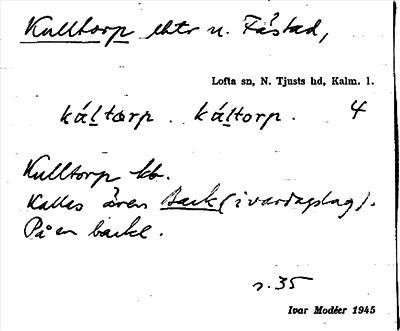 Kulltorp ehtr u. Fåstad,
Lofta sn, N. Tjusts hd, Kalm. l.
káltorp . káltorp . 4
Kulltorp kb.
Kallas även Back (i vardagslag).
På en backe.
s. 35
Ivar Modéer 1945